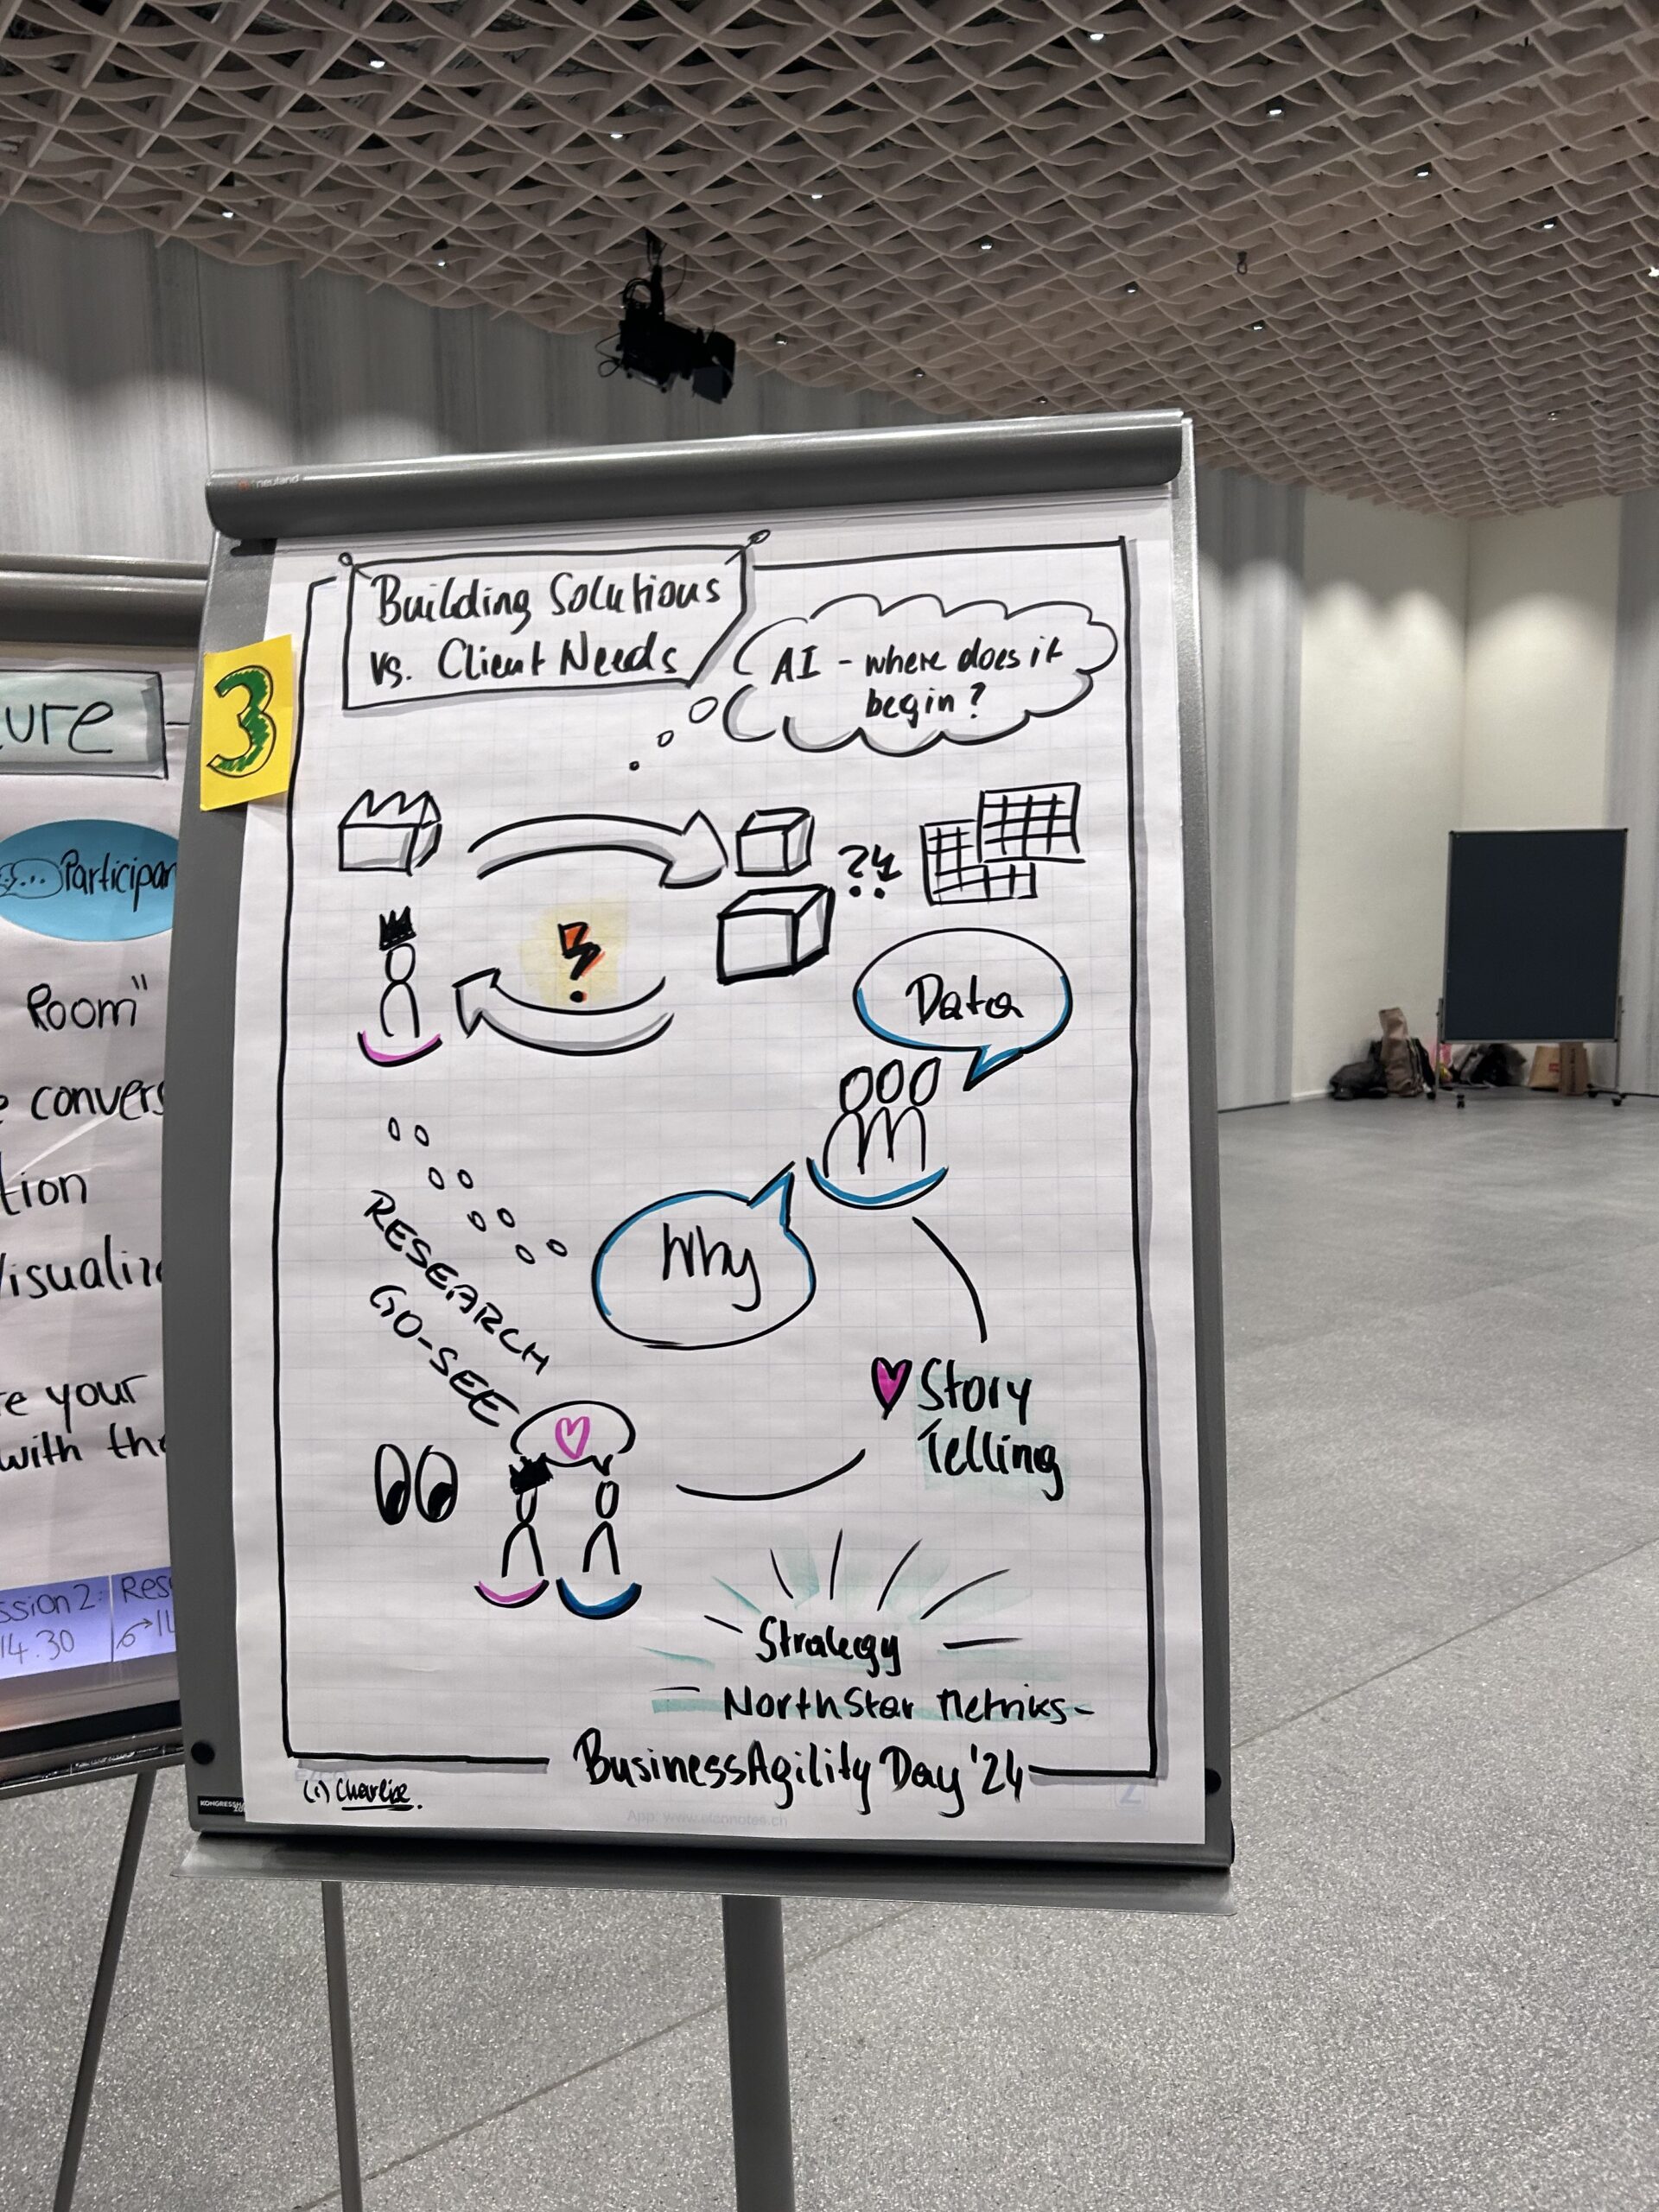 neuland
Building Solutions
vs. Client Needs
AI - where does it
begin?
3
?!
Data
Why
RESEARCH
GO-SEE
Story
Telling
Strategy
NorthStar Metriks
BusinessAgility Day '24
(c) Charlie.
ure
Participan
Room"
convers
tion
Visualize
re your
with the
ssion 2:
14.30
Res